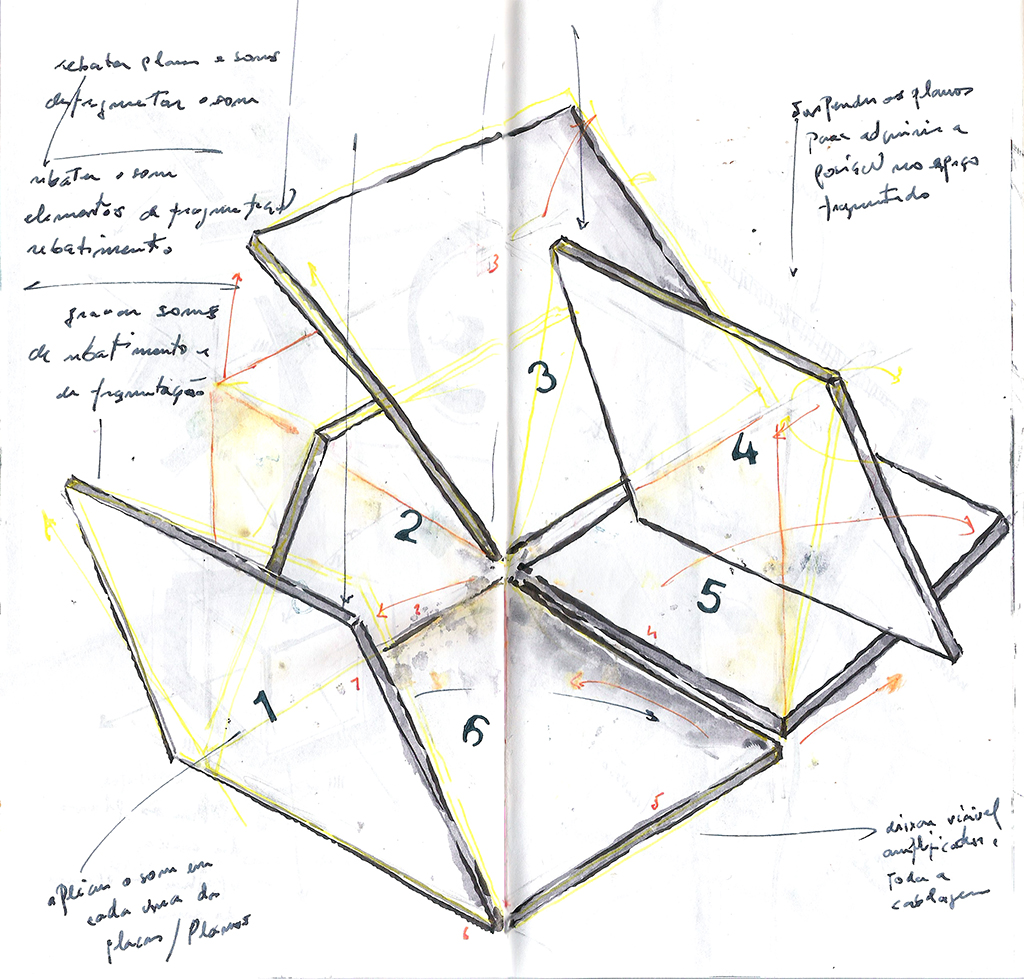 rebater planos e sons
defragmentar o som
rebater o som
elementos de fragmentação
rebatimento
gravar sons
de rebatimento e
de fragmentação
suspender os planos
para adquirir a
posição no espaço
fragmentado
3
3
4
2
5
2
4
1
1
6
5
6
aplicar o som em
cada uma das
placas / Planos
deixar visível
amplificador e
toda a
cablagem